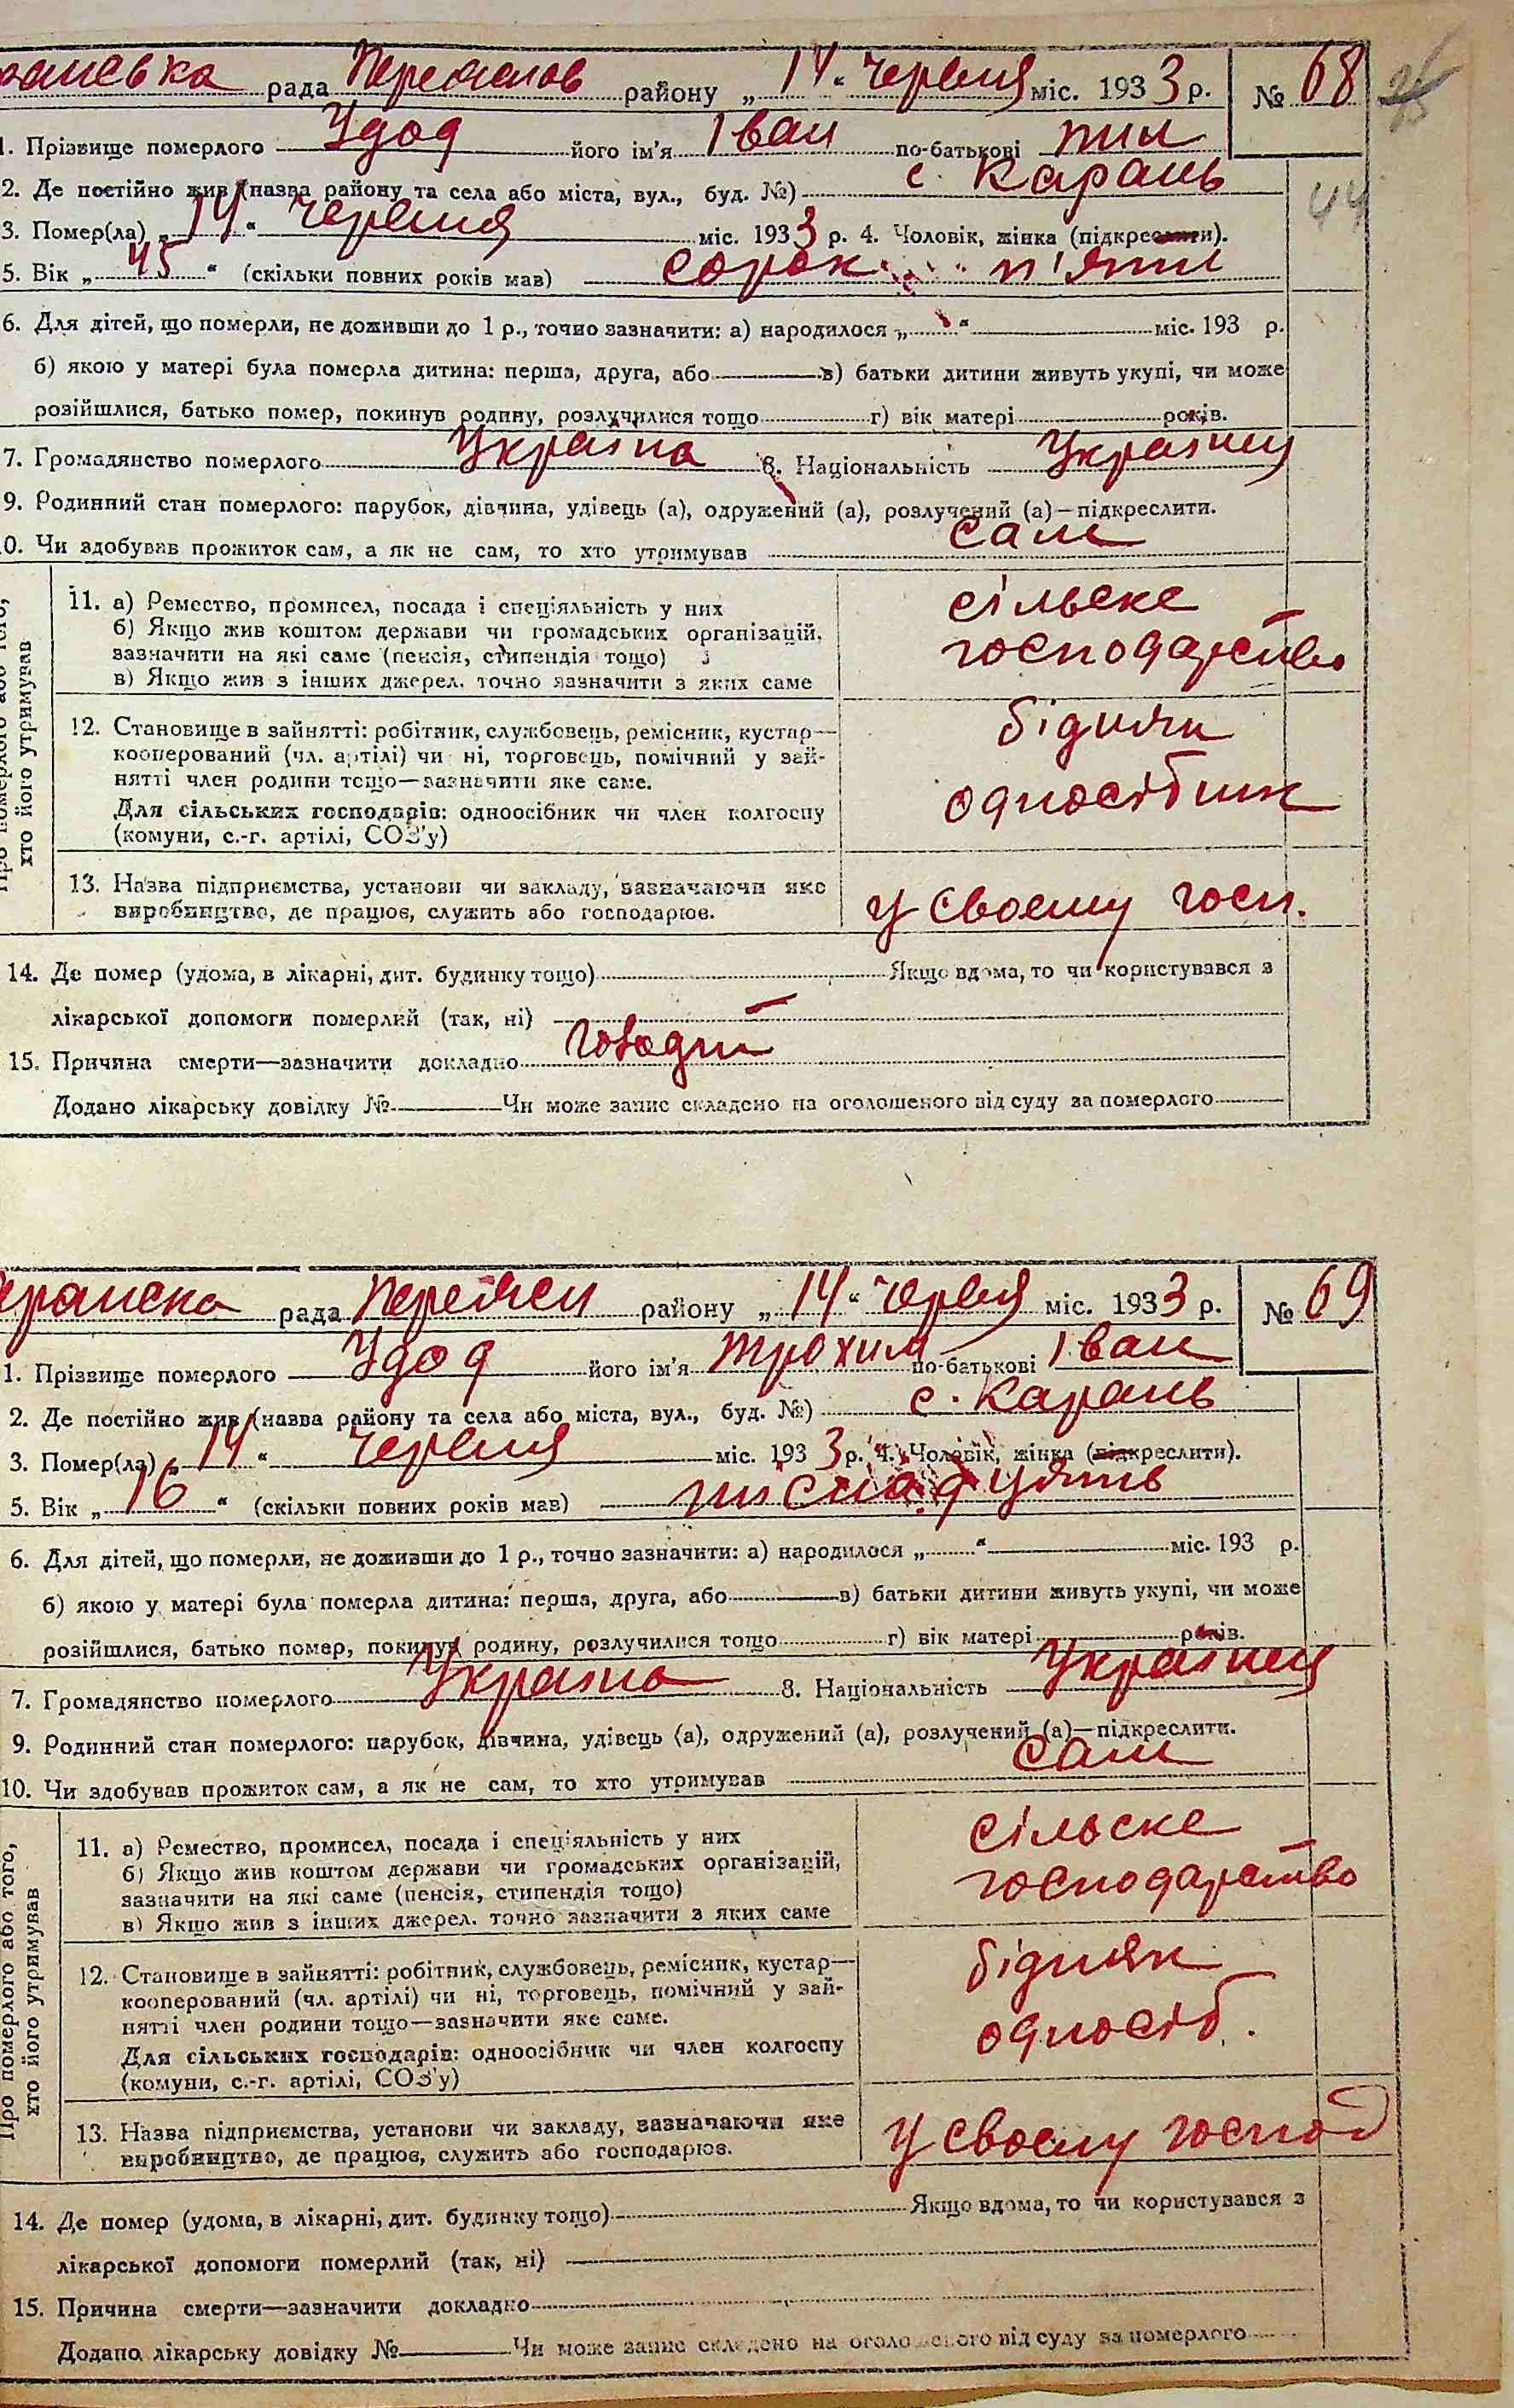 рада Переяслов району „14“ червня міс. 1933 р. № 68
1. Прізвище померлого Удод його ім'я Іван по-батькові
2. Де постійно жив (назва району та села або міста, вул., буд. №) с. Карань
44
3. Помер(ла) „14“ червня міс. 1933 р. 4. Чоловік, жінка (підкреслити).
5. Вік „45“ (скільки повних років мав) сорок п'яти
6. Для дітей, що померли, не доживши до 1 р., точно зазначити: а) народилося „ “ міс. 193 р.
б) якою у матері була померла дитина: перша, друга, або в) батьки дитини живуть укупі, чи може
розійшлися, батько помер, покинув родину, розлучилися тощо г) вік матері років.
7. Громадянство померлого Україна 8. Національність Українец
9. Родинний стан померлого: парубок, дівчина, удівець (а), одружений (а), розлучений (а)—підкреслити.
0. Чи здобував прожиток сам, а як не сам, то хто утримував сам
хто його утримував
11. а) Ремество, промисел, посада і спеціяльність у них
б) Якщо жив коштом держави чи громадських організацій,
зазначити на які саме (пенсія, стипендія тощо)
в) Якщо жив з інших джерел, точно зазначити з яких саме
сільске
господарство
12. Становище в зайнятті: робітник, службовець, ремісник, кустар—
кооперований (чл. артілі) чи ні, торговець, помічний у зай-
нятті член родини тощо—зазначити яке саме.
Для сільських господарів: одноосібник чи член колгоспу
(комуни, с.-г. артілі, СОЗ'у)
бідняк
односібник
13. Назва підприємства, установи чи закладу, зазначаючи яке
виробництво, де працює, служить або господарює.
у своєму госп.
14. Де помер (удома, в лікарні, дит. будинку тощо) Якщо вдома, то чи користувався з
лікарської допомоги померлий (так, ні)
15. Причина смерти—зазначити докладно
Додано лікарську довідку № Чи може запис складено на оголошеного від суду за померлого
рада району „14“ червня міс. 1933 р. № 69
1. Прізвище померлого Удод його ім'я Трохим по-батькові Іван
2. Де постійно жив (назва району та села або міста, вул., буд. №) с. Карань
3. Помер(ла) „14“ червня міс. 1933 р. 4. Чоловік, жінка (підкреслити).
5. Вік „16“ (скільки повних років мав)
6. Для дітей, що померли, не доживши до 1 р., точно зазначити: а) народилося „ “ міс. 193 р.
б) якою у матері була померла дитина: перша, друга, або в) батьки дитини живуть укупі, чи може
розійшлися, батько помер, покинув родину, розлучилися тощо г) вік матері років.
7. Громадянство померлого Україна 8. Національність Українец
9. Родинний стан померлого: парубок, дівчина, удівець (а), одружений (а), розлучений (а)—підкреслити.
10. Чи здобував прожиток сам, а як не сам, то хто утримував сам
Про померлого або того,
хто його утримував
11. а) Ремество, промисел, посада і спеціяльність у них
б) Якщо жив коштом держави чи громадських організацій,
зазначити на які саме (пенсія, стипендія тощо)
в) Якщо жив з інших джерел, точно зазначити з яких саме
сільске
господарство
12. Становище в зайнятті: робітник, службовець, ремісник, кустар—
кооперований (чл. артілі) чи ні, торговець, помічний у зай-
нятті член родини тощо—зазначити яке саме.
Для сільських господарів: одноосібник чи член колгоспу
(комуни, с.-г. артілі, СОЗ'у)
бідняк
односіб.
13. Назва підприємства, установи чи закладу, зазначаючи яке
виробництво, де працює, служить або господарює.
у своєму господ
14. Де помер (удома, в лікарні, дит. будинку тощо) Якщо вдома, то чи користувався з
лікарської допомоги померлий (так, ні)
15. Причина смерти—зазначити докладно
Додано лікарську довідку № Чи може запис складено на оголошеного від суду за померлого